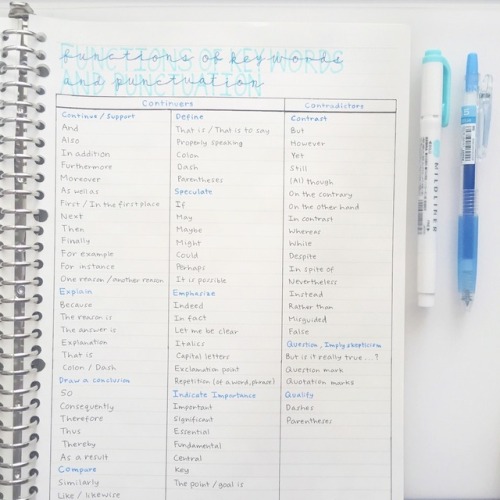 FUNCTIONS OF KEY WORDS
functions of key words
AND PUNCTUATION
and punctuation
Continuers
Continue / Support
And
Also
In addition
Furthermore
Moreover
As well as
First / In the first place
Next
Then
Finally
For example
For instance
One reason / another reason
Explain
Because
The reason is
The answer is
Explanation
That is
Colon / Dash
Draw a conclusion
So
Consequently
Therefore
Thus
Thereby
As a result
Compare
Similarly
Like / likewise
Define
That is / That is to say
Properly speaking
Colon
Dash
Parentheses
Speculate
If
May
Maybe
Might
Could
Perhaps
It is possible
Emphasize
Indeed
In fact
Let me be clear
Italics
Capital letters
Exclamation point
Repetition (of a word, phrase)
Indicate Importance
Important
Significant
Essential
Fundamental
Central
Key
The point / goal is
Contradictors
Contrast
But
However
Yet
Still
(Al) though
On the contrary
On the other hand
In contrast
Whereas
While
Despite
In spite of
Nevertheless
Instead
Rather than
Misguided
False
Question, Imply skepticism
But is it really true...?
Question mark
Quotation marks
Qualify
Dashes
Parentheses
MILDLINER